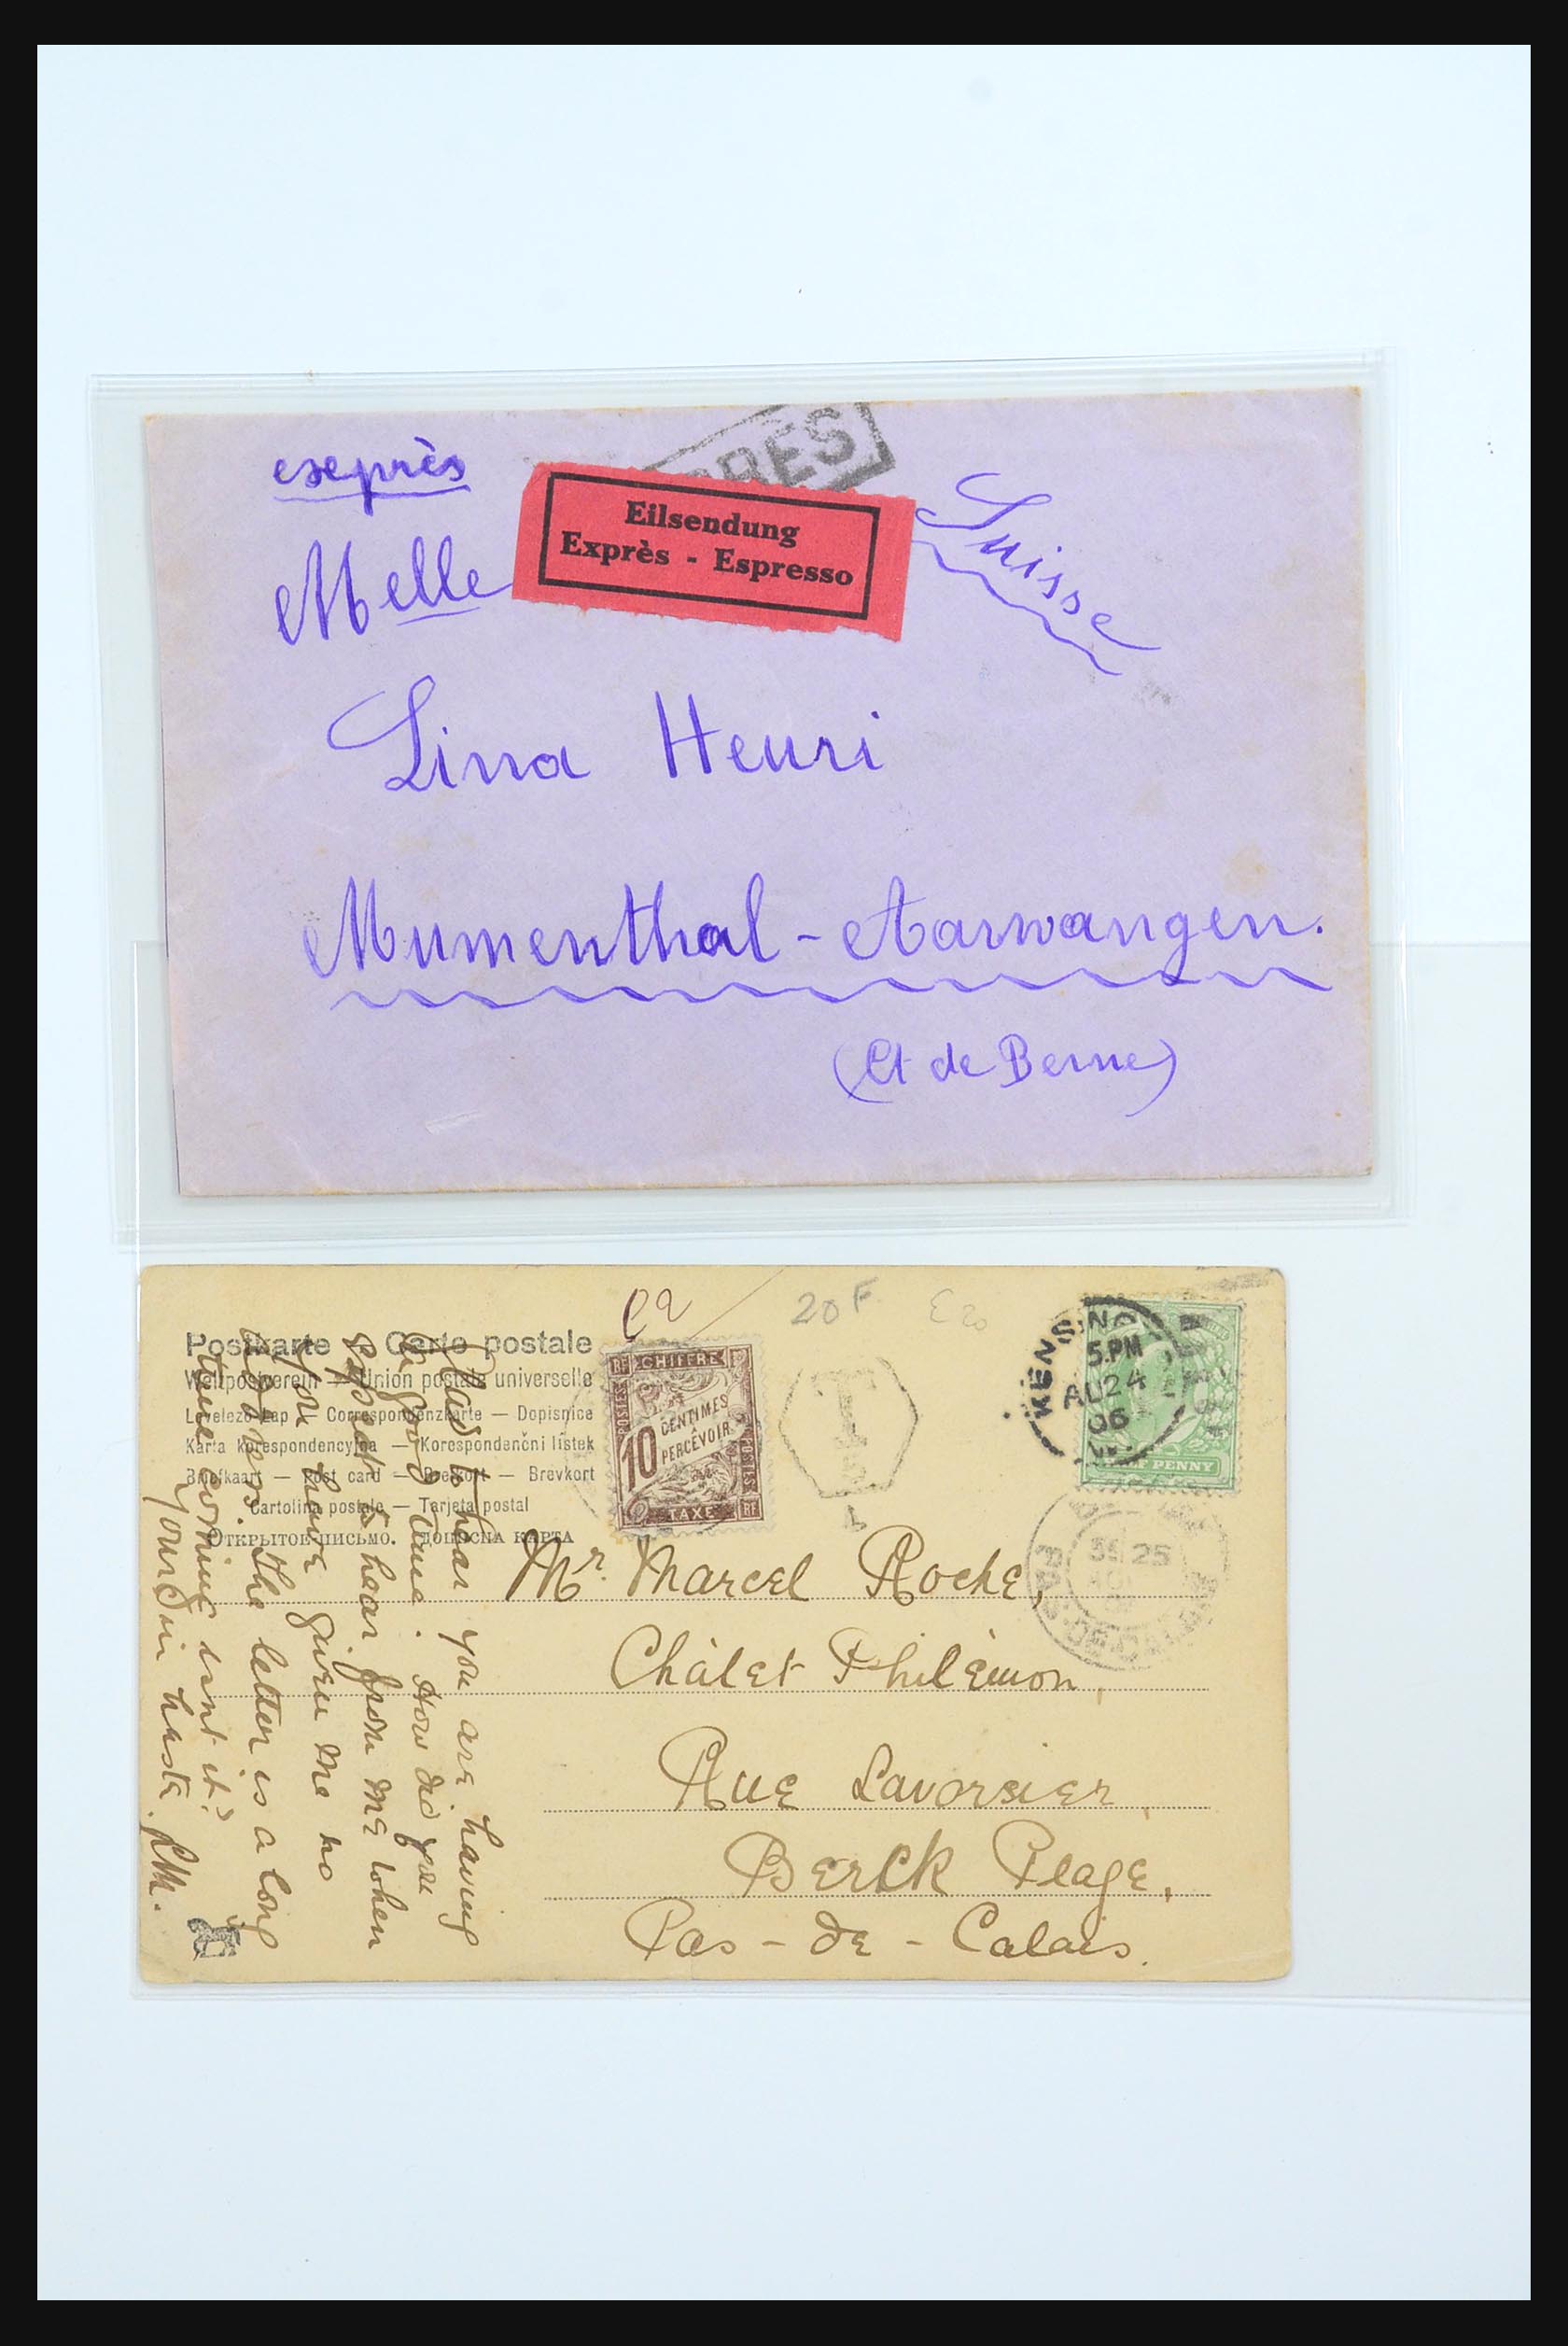 exeprès
PRÈS
Eilsendung
Exprès - Espresso
Suisse
Melle
Lina Heuri
Mumenthal - Aarwangen.
(Ct de Berne)
20 F
E 20
Postkarte — Carte postale
Weltpostverein — Union postale universelle
Levelező-Lap — Correspondenzkarte — Dopisnice
Karta korespondencyjna — Korespondenční lístek
Briefkaart — Post card — Brefkort — Brevkort
Cartolina postale — Tarjeta postal
ОТКРЫТОЕ ПИСЬМО. ДОПИСНА КАРТА
RF CHIFFRE
POSTES
10 CENTIMES
A PERCEVOIR
POSTES
TAXE RF
T
KENSINGTON
5.PM
AU 24
06
HALF PENNY
25
PAS-DE-CALAIS
Mr. Marcel Roche,
Châlet Philémon,
Rue Lavoisier,
Berck Plage,
Pas-de-Calais.
Glad to hear you are having
a good time. How did you
expect to hear from me when
you have given me no
address. The letter is a long
time coming isnt it?
Yours in haste. RM.